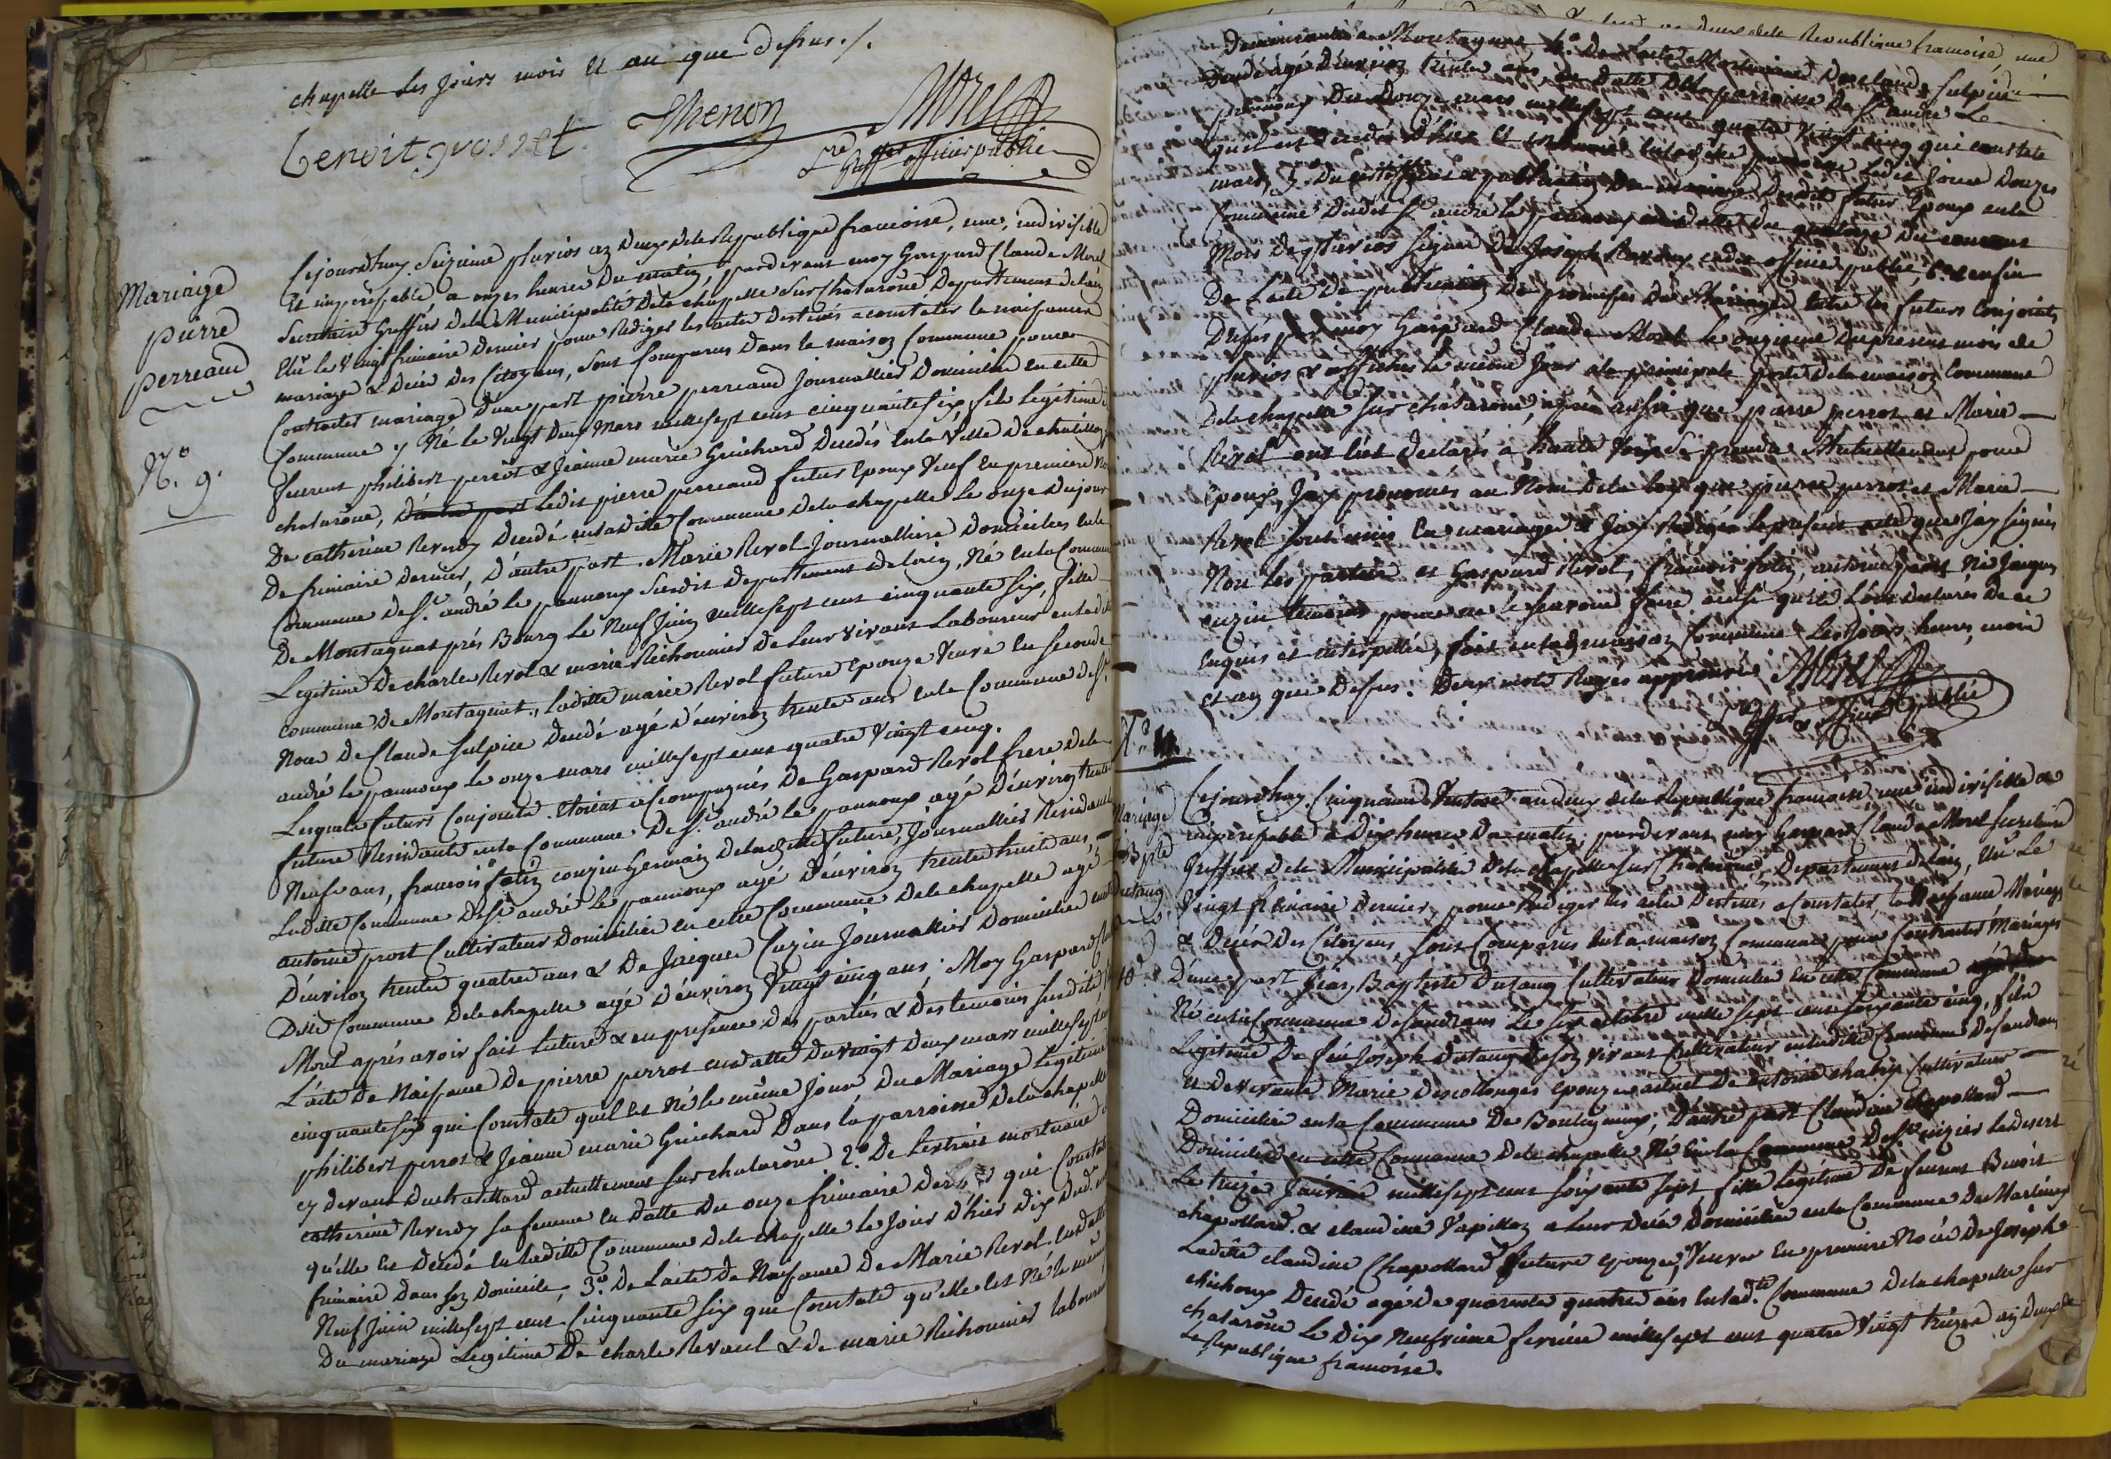 chapelle Les Jours mois et an que dessus ./.
Benoit grosset Thenon Morel
Sre greff officier public
Mariage
pierre
perreaud
N.o 9.
Cejourdhuy Seizieme pluvios an deux dela Republique francoise, une, indivisible
et imperissable a onzes heures Du matin, pardevant moy Gaspard Claude Morel
Secretaire Greffier Dela Municipalité Dela chapelle Sur chalarône Departement delain
Elu le Vingt frimaire dernier pour Rediger les actes Destinés a constater la naissance
mariage & Décès Des Citoyens, Sont Comparus Dans la maison Commune pour
Contracter mariage D'une part pierre perreaud Journallier Domicilié en cette
Commune y Né le Vingt deux Mars millesept cent cinquante six fils Légitime de
feurent philibert perrot & Jeanne marie Guichard Decedés en la Ville De chatillon
chalarône, Ledit pierre perreaud futur Epoux Veuf En premiere
De catherine Revendy Decedé en ladite Commune dela chapelle Le onze Dujour
De frimaire dernier, D'autre part Marie Revol Journalliere Domiciliée en la
Commune de St. andré le pannoux Susdit departement Delain, Né en la Commune
De Montagnat prés Bourg Le Neuf Juin millesept cent cinquante Six, fille
Legitime De charle Revol & marie Richonnier de Leur vivant Laboureur en lad.
Commune De Montagnat, Laditte marie Revol future Epouze Veuve en seconde
Noce De Claude Sulpice Decedé agé D'environ trente ans en la Commune de St.
andré le pannoux le onze mars millesept cent quatre Vingt cinq.
Lesquels futurs Conjoints étoient accompagnés De Gaspard Revol frere dela
future Residante en la Commune De St. andré le pannoux agé D'environ trente
Neuf ans, francois couzin Germain De ladite future, Journallier Residant
Ladite Commune de St. andré Le pannoux agé D'environ trente huit ans,
antoine prost Cultivateur Domicilié en cette Commune Dela chapelle agé
D'environ trente quatre ans & De Jaique Cuzin Journallier Domicilié en
Dite Commune Dela chapelle agé D'environ Vingt cinq ans; Moy Gaspard
Morel aprés avoir fait Lecture & en presence des parties & des temoins
L'acte De Naissance De pierre perrot en datte Du vingt Deux mars millesept
cinquante six qui Constate quil Est Né le même Jour Du Mariage Legitime
philibert perrot & Jeanne marie Guichard Dans la parroisse Dela chapelle
cy devant Duchatellard actuellement sur chalarône 2.o De L'extrait mortuaire
catherine Revendy sa femme en datte Du onze frimaire der qui Constate
qu'elle Est Decedé En laditte Commune Dela chapelle le Jour D'hier Dix dud.
frimaire Dans son Domicile, 3.o De Lacte De Naissance De Marie Revol en datte
Neuf Juin millesept cent Cinquante Six qui Constate qu'elle Est Né le même
Du mariage Legitime De charle & de marie Richonnier laboureur
Demeurants à Montagnat, 4.o De Lacte Mortuaire De Claude Sulpice
Decedé agé D'environ trente ans en datte Dela parroisse De St. andré Le
pannoux Du Douze mars millesept cent quatre Vingt cinq qui constate
quil est Decedé D'hier et inhumé Ledit Jour Douzes
mars, 5. Du certifficat & publication De mariage Dudit futur Epoux en la
Commune Dudit St. andré le pannoux en datte Du quatorze Du courant
Mois De pluvios signé De Joseph officier public, 6.o & enfin
De Lacte De publication De promesses De Mariage Entre les futurs Conjoints
Dressé par moy Gaspard Claude Morel Le onzieme Du present mois de
pluvios & affiché le même Jour ala principale porte Dela maison Commune
Dela chapelle Sur chalarône, aprés aussi que pierre perrot et Marie
Revol ont Eût Declarés à haute Voix Se prendre Mutuellement pour
Epoux, J'ay prononcés au Nom Dela loy que pierre perrot et Marie
Revol sont unis En mariage & J'ay Redigé le present acte que J'ay signés
Non Les parties et Gaspard Revol, francois , antoine prost Ni Jaiques
cuzin temoins pour ne le Scavoire faire ainsi quils L'ont declarés De ce
Enquis et interpellés, fait en lad. maison Commune Les Jours, heures, mois
et an que Dessus. Deux mots Rayes approuvés Morel
greff & officier public
N.o
Mariage
Dutang
10
Cejourdhuy Cinquieme Ventose an deux dela Republique francoise une indivisible et
imperissable à Dix heures Du matin, pardevant moy Gaspard Claude Morel secretaire
Greffier Dela Municipalité Dela chapelle sur Chalarône, Departement Delain, Elu Le
Vingt frimaire Dernier, pour Rediger les actes Destinés a Constater, la Naissance, Mariages
& Décès Des Citoyens, Sont Comparus En la maison Commune pour Contracter Mariages
D'une part Jéan Baptiste Dutang Cultivateur Domicilié En cette Commune
Né en la Commune De Sandrans Le six octobre mille sept cent soixante cinq, fils
Legitime De feu Joseph Dutang De son vivant Cultivateur en ladite Commune De Sandrans
et de vivante Marie Descollonges Epouze actuel De antoine chalix Cultivateur
Domicilié en la Commune De Bouligneux, D'autre part Claudine Chapollard
Domicilié en cette Commune Dela chapelle, Né En la Commune De St. nizier Ledesert
Le treize Janvier millesept cent soixante Sept, fille Legitime De feurent Benoit
Chapollard & claudine Papillon a Leur Décés Domicilié en la Commune De Marlieux
Laditte claudine Chapollard future epouze, Veuve En premiere Noces De Joseph
Michoux Decedé agé De quarente quatre ans en lad.te Commune dela chapelle sur
chalarône Le Dix Neufvieme fevrier millesept cent quatre Vingt treize an Deux De
la Republique francoise.